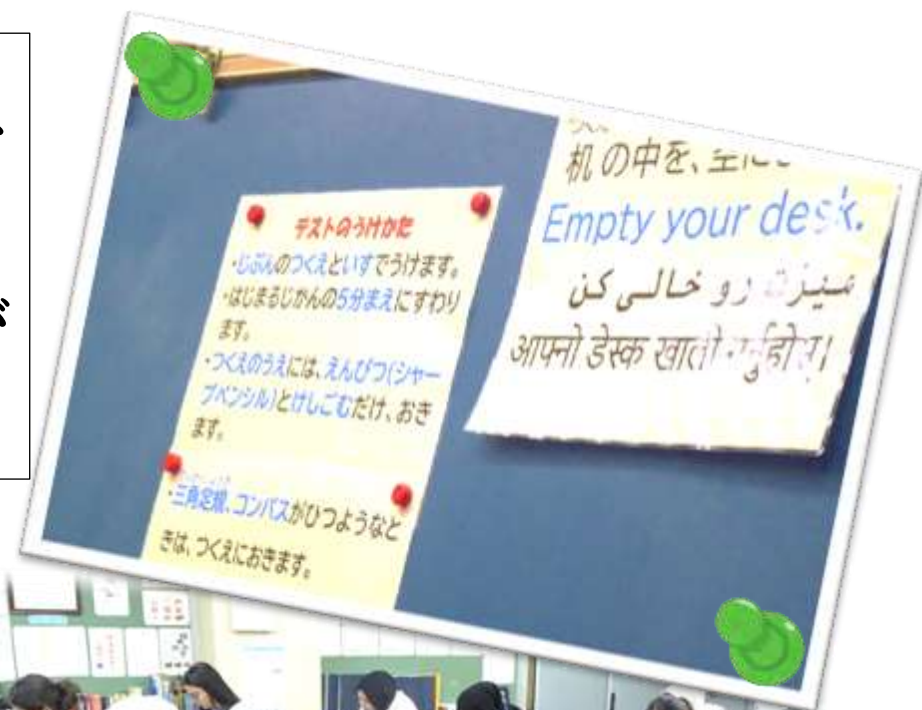 テストのうけかた
・じぶんのつくえといすでうけます。
・はじまるじかんの5分まえにすわり
ます。
・つくえのうえには、えんぴつ(シャー
プペンシル)とけしごむだけ、おき
ます。
・三角定規、コンパスがひつようなと
きは、つくえにおきます。
机の中を、空に
Empty your desk.
میزت رو خالی کن
आफ्नो डेस्क खाली गर्नुहोस्।
が